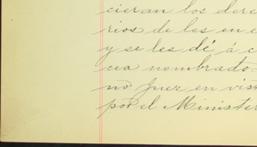 cieran los dere
rios de les en e
y se les dé, á c
cea nombrado
no Juez en vis
por el Minister